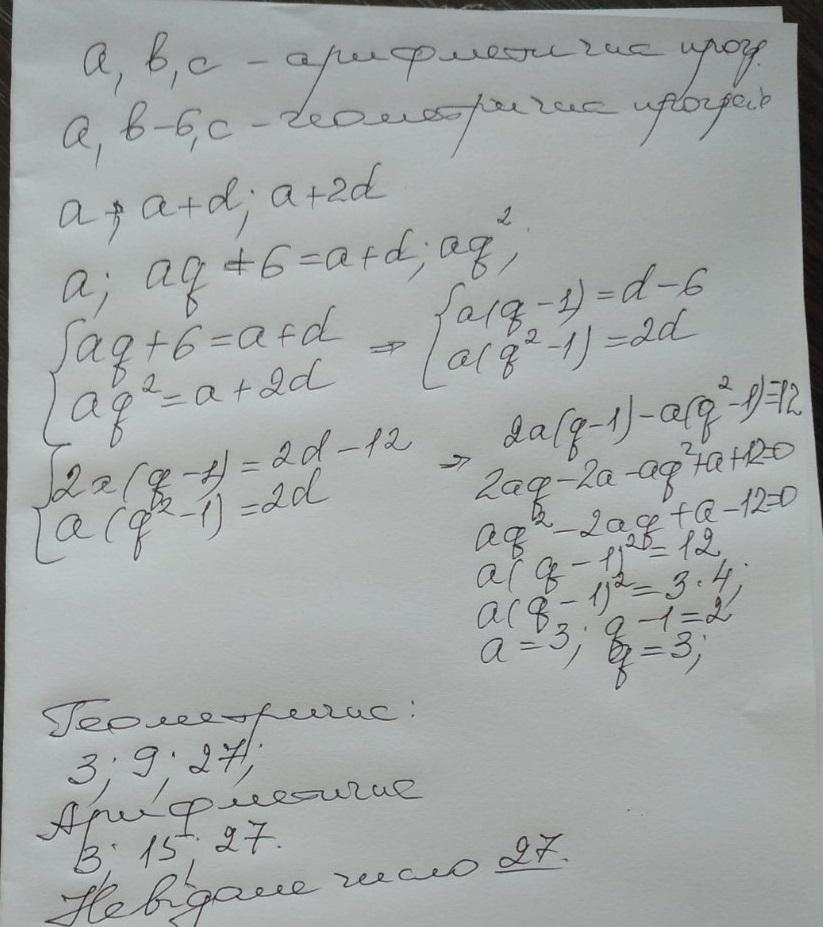 a, в, с - арифметичис прогр.
a, в-6, с - геометричис прогрес
a; a+d; a+2d
a; aq+6=a+d; aq²;
{aq+6=a+d
{aq²=a+2d
⇒ {a(q-1)=d-6
{a(q²-1)=2d
{2a(q-1)=2d-12
{a(q²-1)=2d
⇒ 2a(q-1)-a(q²-1)=-12
2aq-2a-aq²+a+12=0
aq²-2aq+a-12=0
a(q-1)²=12
a(q-1)²=3·4;
a=3; q-1=2
q=3;
Геометричис:
3; 9; 27;
Арифметичис
3; 15; 27.
Невідоме число 27.